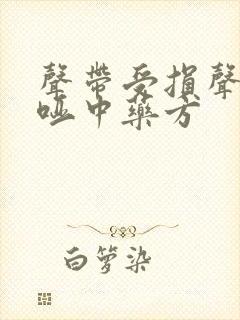 聲帶受損聲
啞中藥方
白箩染